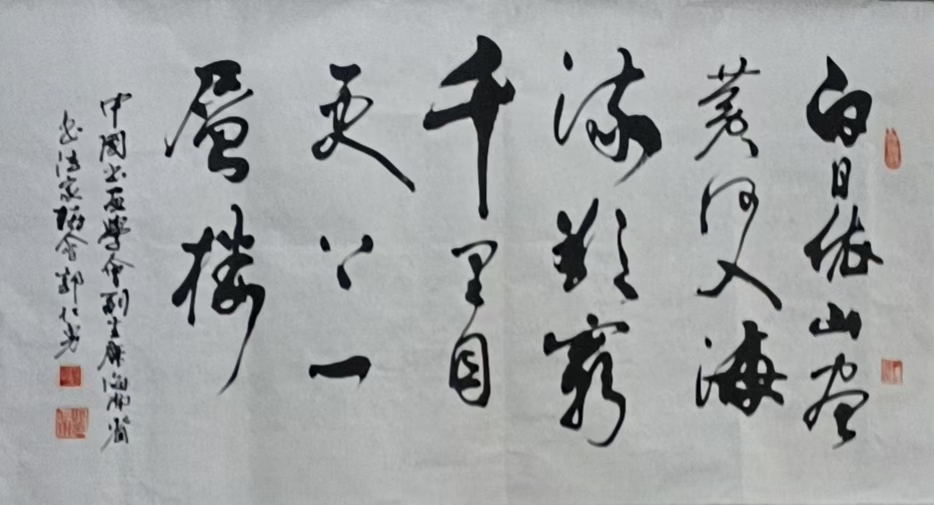 白日依山尽
黄河入海
流欲穷
千里目
更上一
层楼
中国书画学会副主席河南省
书法家协会郑仁芳